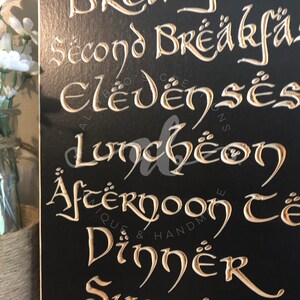 Second Breakfas
Elevenses
Luncheon
Afternoon Te
Dinner